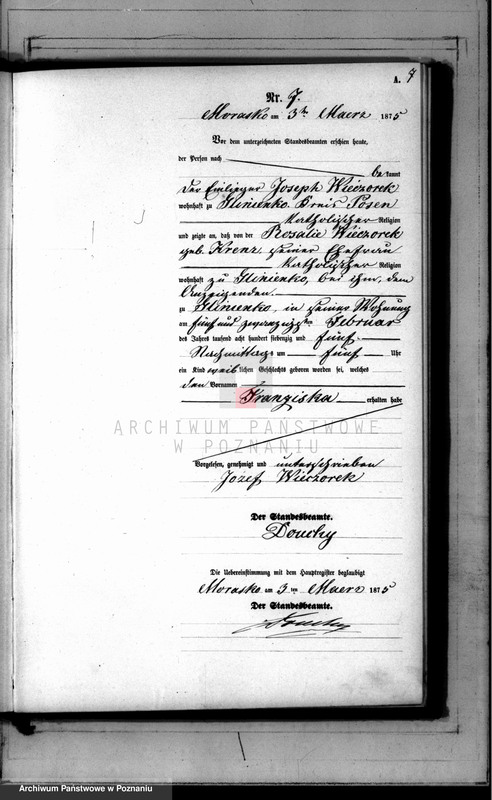 A. 7
Nr. 7.
Morasko am 3ten Maerz 1875
Vor dem unterzeichneten Standesbeamten erschien heute,
der Person nach
bekannt
der Einlieger Joseph Wieczorek
wohnhaft zu Glinienko Kreis Posen
katholischer Religion
und zeigte an, daß von der Rosalie Wieczorek
geb. Krenz, seiner Ehefrau
katholischer Religion
wohnhaft zu Glinienko, bei ihm, dem
Anzeigenden.
zu Glinienko, in seiner Wohnung
am fünf und zwanzigsten Februar
des Jahres tausend acht hundert siebenzig und fünf
Nachmittags um fünf Uhr
ein Kind weiblichen Geschlechts geboren worden sei, welches
den Vornamen
Franziska erhalten habe
ARCHIWUM PAŃSTWOWE
W POZNANIU
Vorgelesen, genehmigt und unterschrieben
Jozef Wieczorek
Der Standesbeamte.
Douchy
Die Uebereinstimmung mit dem Hauptregister beglaubigt
Morasko am 3 ten Maerz 1875
Der Standesbeamte.
Douchy
Archiwum Państwowe w Poznaniu